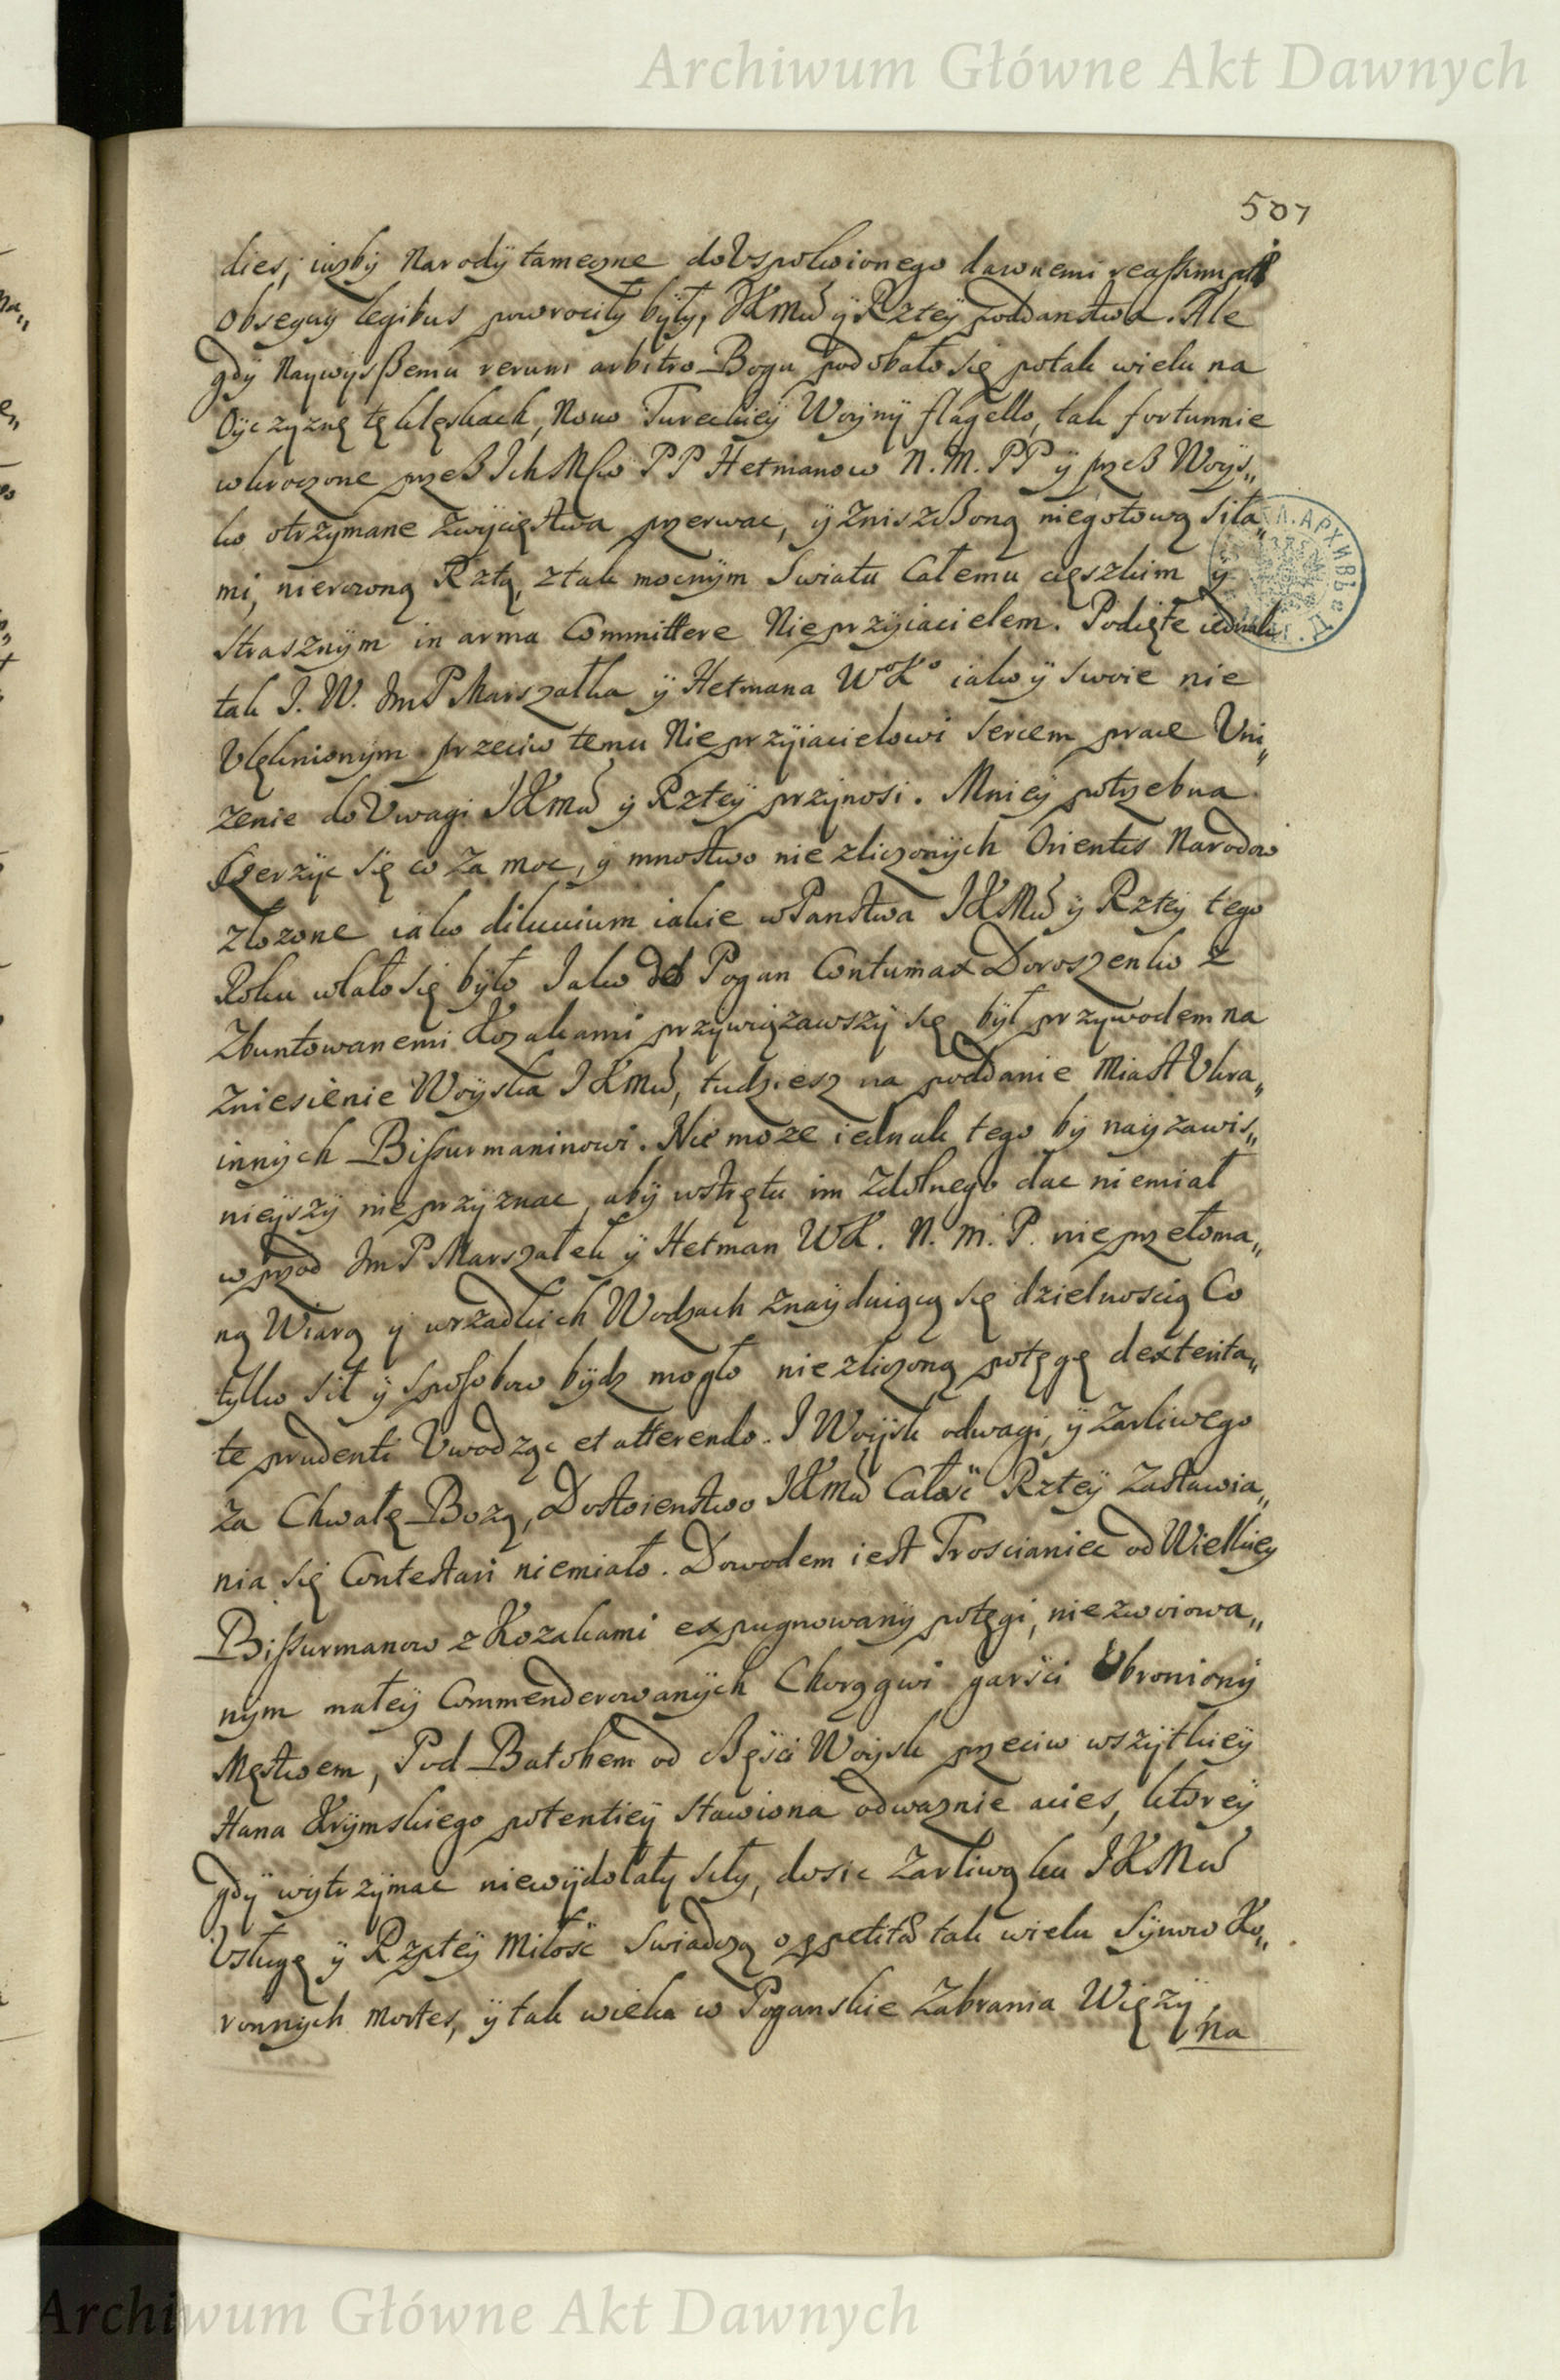 Archiwum Główne Akt Dawnych
507
dies, iużby Narodÿ tameczne do Vspokoionego dawnemi reassumptis
Obsequÿ legibus powrociłÿ bÿłÿ, JKMći ÿ Rzteÿ poddanstwa. Ale
gdÿ Naÿwÿsßemu rerum arbitro Bogu podobało się po tak wielu na
Oÿczÿznę tę klęskach, Nowo Tureckieÿ Woÿnÿ flagello, tak fortunnie
wkroczone przeß Ich Mćw PP Hetmanow N. M. PP ÿ przeß Woÿs„
ko otrzÿmane zwÿcięstwa przerwac, ÿ znisczßoną niegotową siła„
mi, nierowną Rztą, z tak mocnÿm Swiatu Całemu cięszkim ÿ
strasznÿm in arma Committere Nieprzÿiacielem. Podięte iednak
tak J. W. JmP Marszałka ÿ Hetmana WoKo iako ÿ swoie nie
Vlęknionÿm przeciw temu Nieprzÿiacielowi sercem prace Vni„
zenie do Vwagi JKMći ÿ Rzteÿ przÿnosi. Mnieÿ potrzebna
szerzÿc się co za moc, ÿ mnostwo niezliczonÿch Orientis Narodow
złozone iako diluuium iakie w Panstwa JKMći ÿ Rzteÿ tego
Roku wlało się bÿło Jako od Pogan Contumax Doroszenko z
Zbuntowanemi Kozakami przÿwiązawszÿ się bÿł przÿwodem na
Zniesienie Woÿska JKMći, tudziesz na poddanie Miast Vkra„
innÿch Bissurmaninowi. Nie moze iednak tego bÿ naÿzawis„
nieÿszÿ nie przÿznac, abÿ wstrętu im zdolnego dac niemiał
w przod JmP Marszałek ÿ Hetman WK. N. M. P. nieprzełoma„
ną Wiarą ÿ w rzadkich Wodzach znaÿduiącą się dzielnoscią Co
tÿlko sił ÿ sposobow bÿdz mogło niezliczoną potęgę dexterita„
te prudenti Vwodząc et atterendo. I Woÿsk odwagi, ÿ zarliwego
za Chwałę Bozą, Dostoienstwo JKMći Całość Rzteÿ zastawia„
nia się Contestari niemiało. Dowodem iest Trosciániec od Wielkieÿ
Bissurmanow z Kozakami expugnowanÿ potęgi, niezwoiowa„
nÿm małeÿ Commenderowanÿch Chorągwi garści Obronionÿ
Męstwem, Pod Batohem od Częsci Woÿsk przeciw wszÿtkieÿ
Hana Krÿmskiego potentieÿ stawiona odwaznie acies, ktoreÿ
gdÿ wÿtrzÿmac niewÿdołałÿ siłÿ, dosic zarliwą ku JKMći
Vsługę ÿ Rzpteÿ Miłość swiadczą oppetitæ tak wielu Sÿnow Ko„
ronnÿch mortes, ÿ tak wielu w Poganskie Zabrania Więzÿ,
na
Archiwum Główne Akt Dawnych